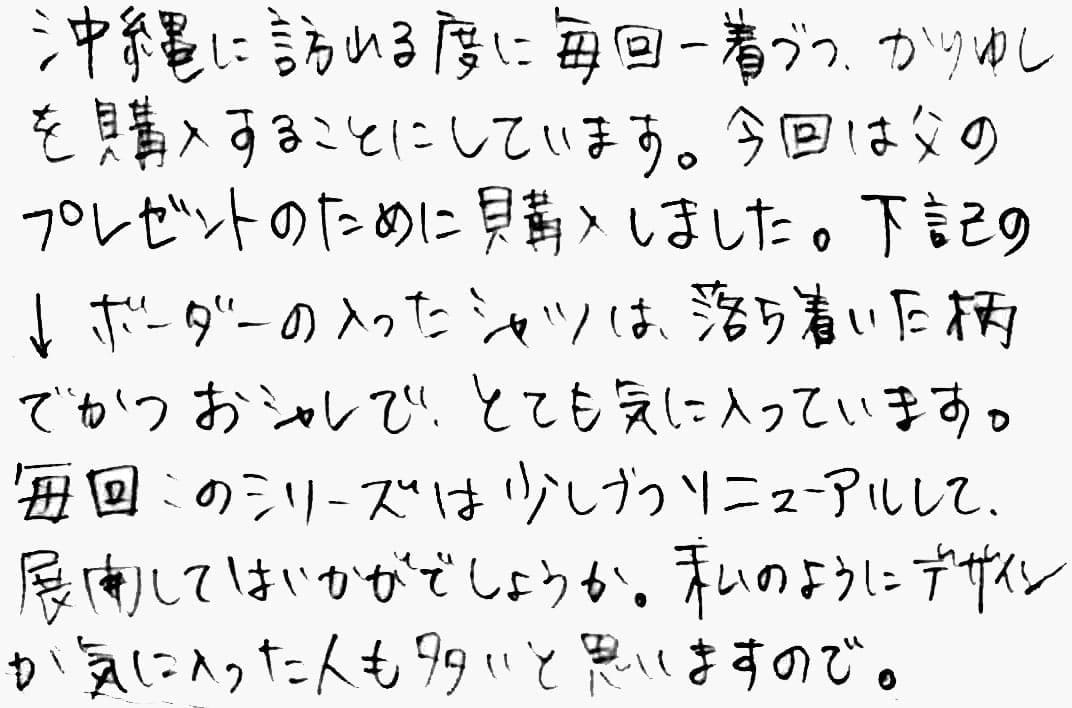 沖縄に訪れる度に毎回一着づつ、かりゆし
を購入することにしています。今回は父の
プレゼントのために購入しました。下記の
↓ボーダーの入ったシャツは、落ち着いた柄
でかつおシャレで、とても気に入っています。
毎回このシリーズは少しづつリニューアルして、
展開してはいかがでしょうか。私のようにデザイン
が気に入った人も多いと思いますので。